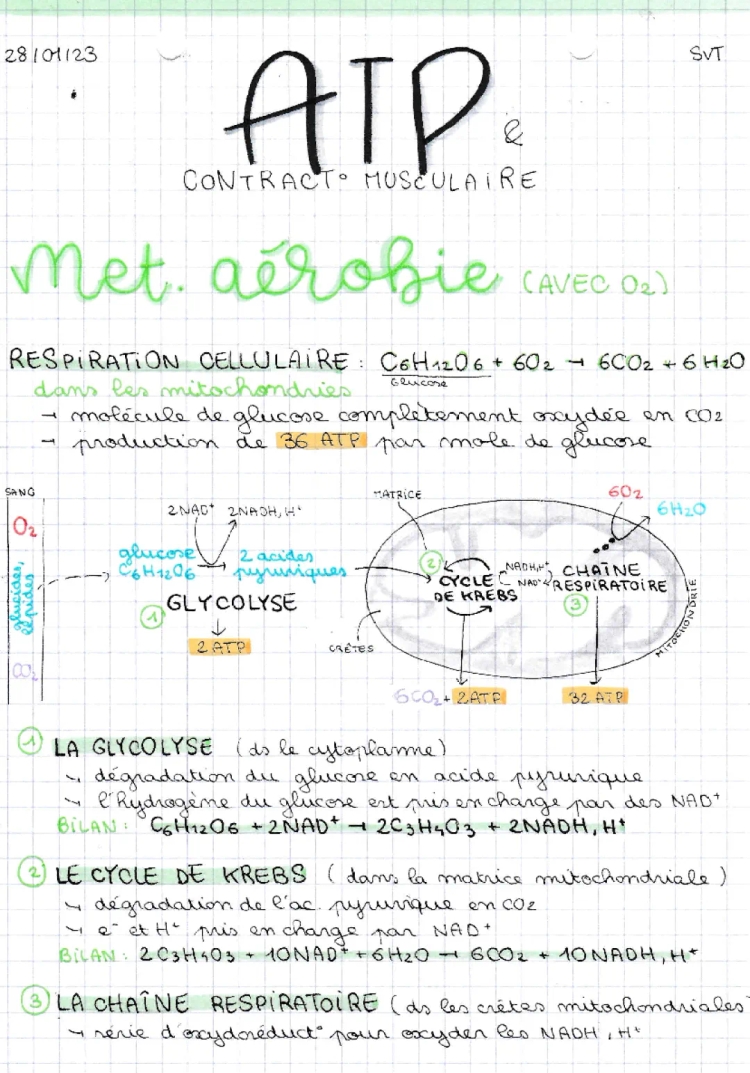 28/01/23
SVT
ATP
&
CONTRACT° MUSCULAIRE
Met. aérobie (AVEC O2)
RESPIRATION CELLULAIRE : C6H12O6 + 6O2 → 6CO2 + 6H2O
Glucose
dans les mitochondries
→ molécule de glucose complètement oxydée en CO2
→ production de 36 ATP par mole de glucose
SANG
O2
glucides, lipides
CO2
2NAD+ 2NADH, H+
glucose
C6H12O6
2 acides
pyruviques
1 GLYCOLYSE
2 ATP
MATRICE
6O2
6H2O
2
CYCLE
DE KREBS
NADH,H+
NAD+
CHAÎNE
RESPIRATOIRE
3
CRÊTES
MITOCHONDRIE
6CO2 + 2ATP
32 ATP
1 LA GLYCOLYSE (ds le cytoplasme)
↳ dégradation du glucose en acide pyruvique
↳ l'hydrogène du glucose est pris en charge par des NAD+
BILAN : C6H12O6 + 2NAD+ → 2C3H4O3 + 2NADH, H+
2 LE CYCLE DE KREBS (dans la matrice mitochondriale)
↳ dégradation de l'ac. pyruvique en CO2
↳ e- et H+ pris en charge par NAD+
BILAN : 2C3H4O3 + 10NAD+ + 6H2O → 6CO2 + 10NADH, H+
3 LA CHAÎNE RESPIRATOIRE (ds les crêtes mitochondriales
↳ série d'oxydoréduct° pour oxyder les NADH, H+